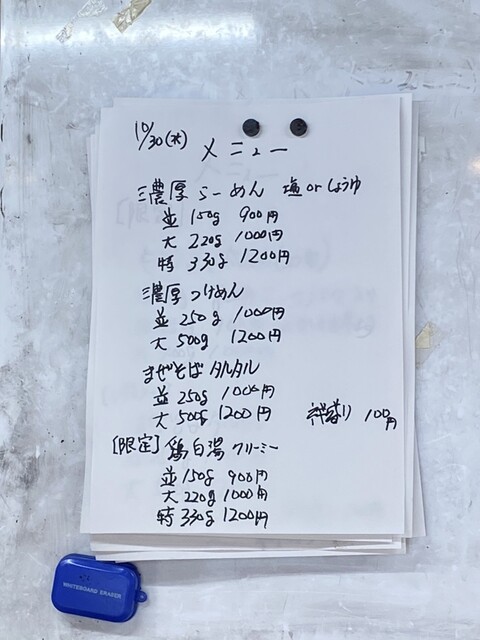 10/30(水)
メニュー
濃厚らーめん 塩orしょうゆ
並 150g 900円
大 220g 1000円
特 330g 1200円
濃厚 つけめん
並 250g 1000円
大 500g 1200円
まぜそば タルタル
並 250g 1000円
大 500g 1200円
盛り 100円
[限定] 鶏白湯 クリーミー
並 150g 900円
大 220g 1000円
特 330g 1200円
WHITEBOARD ERASER